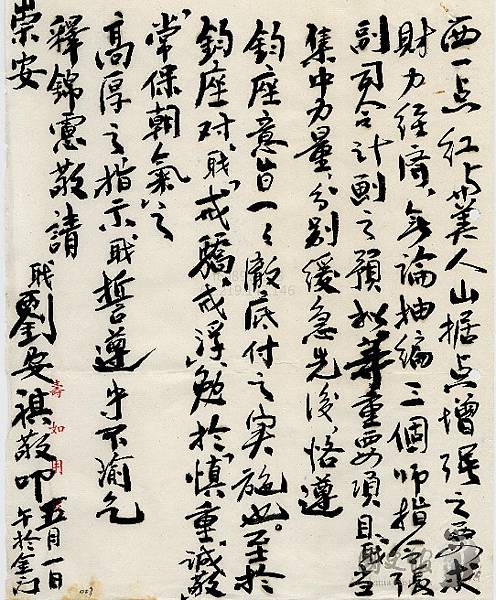 西一点红与美人山据点增强之要求
财力经济、无论抽编三個师指令張
副司令计画之预拟等重要项目、职当
集中力量、分别缓急先後、恪遵
鈞座意旨一々徹底付之实施也。至於
鈞座对职"戒驕"、戒浮"勉於"慎重"、"诚敬"
"常保朝氣"之
高厚之指示、职誓遵守不渝乞
释錦憲敬請
崇安
职劉安祺敬叩 五月一日
午於金门
壽如用
029